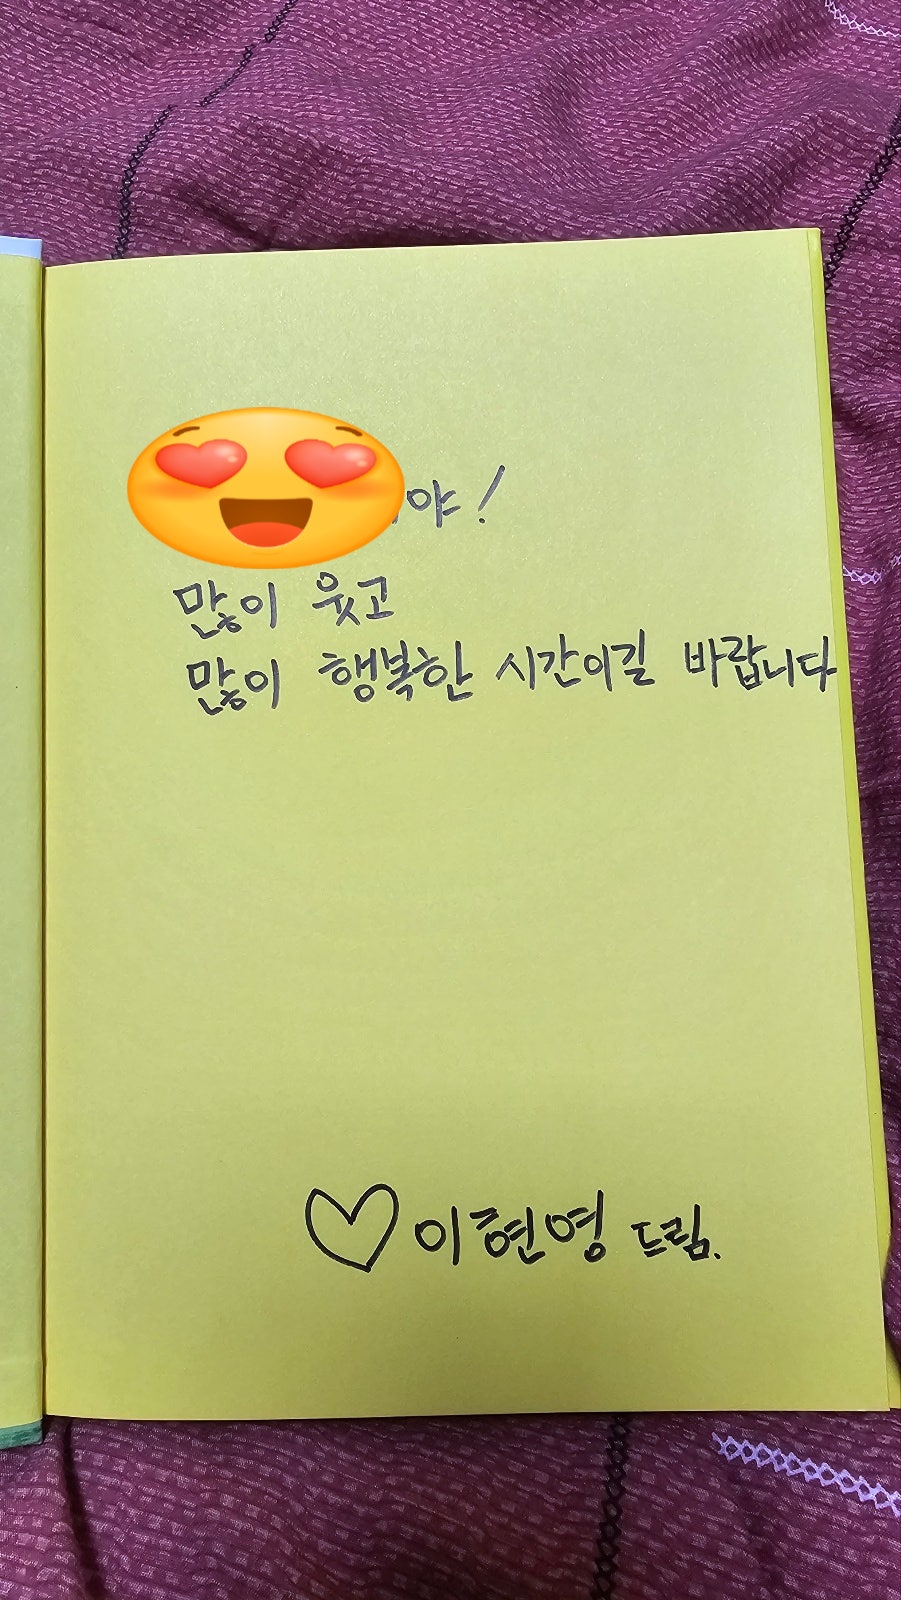 야!
많이 웃고
많이 행복한 시간이길 바랍니다
♡ 이현영 드림.